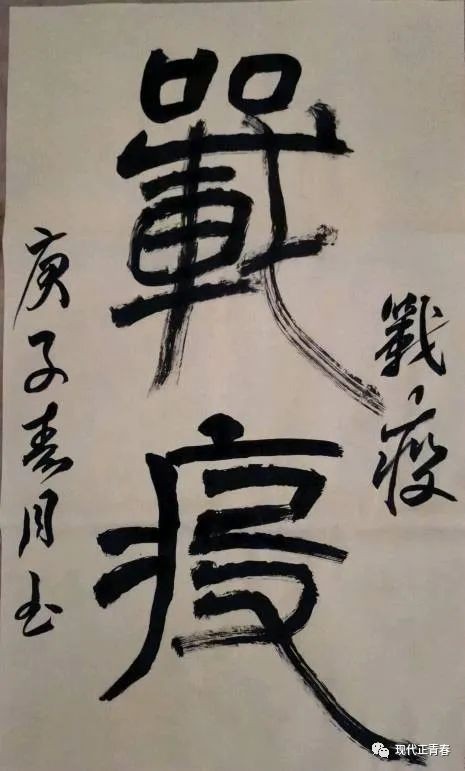 戰、疫
戰疫
庚子春月书
现代正青春